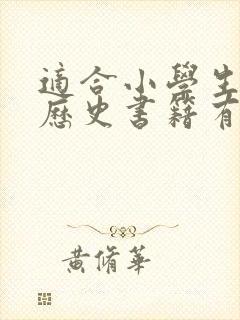 適合小學生
歷史書籍有
黃脩華